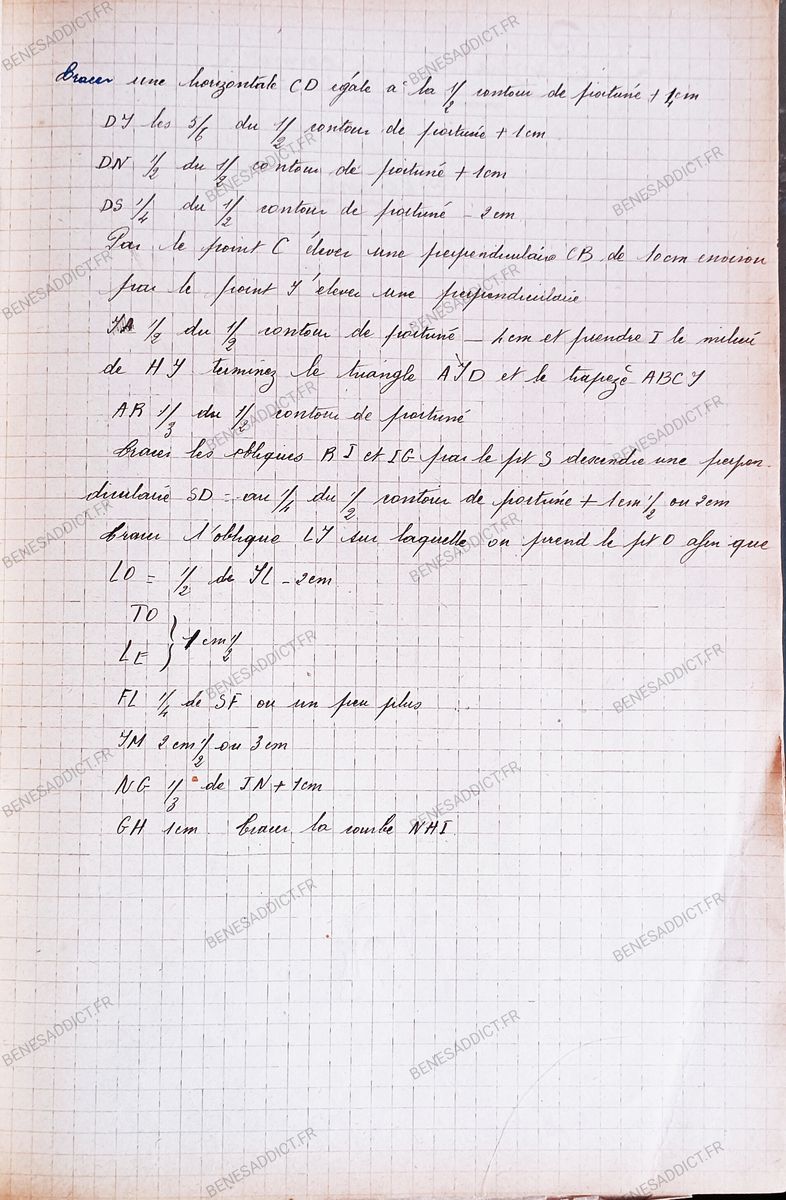 Tracer une horizontale CD égale à la 1/2 contour de poitrine + 1cm
DJ les 5/6 du 1/2 contour de poitrine + 1cm
DN 1/2 du 1/2 contour de poitriné + 1cm
DS 1/4 du 1/2 contour de poitriné - 2cm
Par le point C élever une perpendiculaire CB de 10cm environ
par le point J élever une perpendiculaire
JA 1/2 du 1/2 contour de poitriné - 4cm et prendre I le milieu
de HJ terminez le triangle AJD et le trapèze ABCJ
AR 1/3 du 1/2 contour de poitriné
Tracer les obliques RI et IG par le pt S descendre une perpen-
diculaire SD = au 1/4 du 1/2 contour de poitrine + 1cm 1/2 ou 2cm
Tracer l'oblique LJ sur laquelle on prend le pt O afin que
LO = 1/2 de JL - 2cm
TO
LE } 1cm 1/2
FL 1/4 de SF ou un peu plus
JM 2cm 1/2 ou 3cm
NG 1/3 de IN + 1cm
GH 1cm Tracer la courbe NHI
BENESADDICT.FR